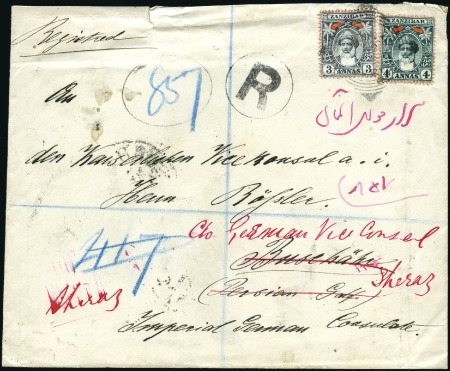 Registered
ZANZIBAR ZANZIBAR
3 ANNAS 3 4 ANNAS 4
An 857 R
den Kaiserlichen Vicekonsul a. i.
Herrn Rößler.
c/o German Vice Consul
417 Buschähr
Shiraz (Persian Gulf) Sheraz
Imperial German Consulate.